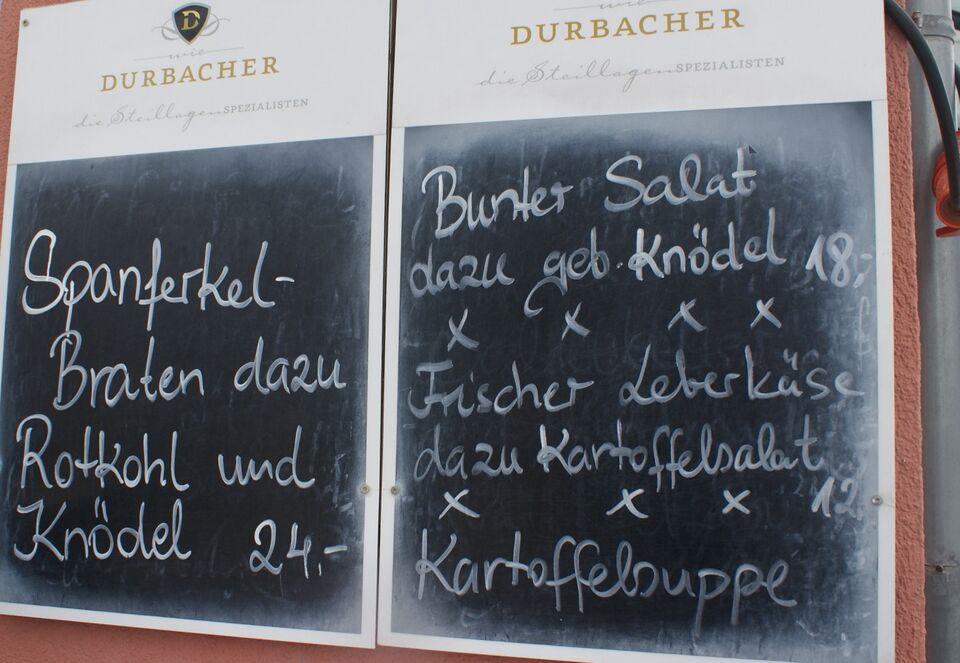 D
wie
DURBACHER
die Steillagen SPEZIALISTEN
Spanferkel-
Braten dazu
Rotkohl und
Knödel 24.-
wie
DURBACHER
die Steillagen SPEZIALISTEN
Bunter Salat
dazu geb. Knödel 18,-
x x x x
Frischer Leberkäse
dazu Kartoffelsalat
x x x 12
Kartoffelsuppe